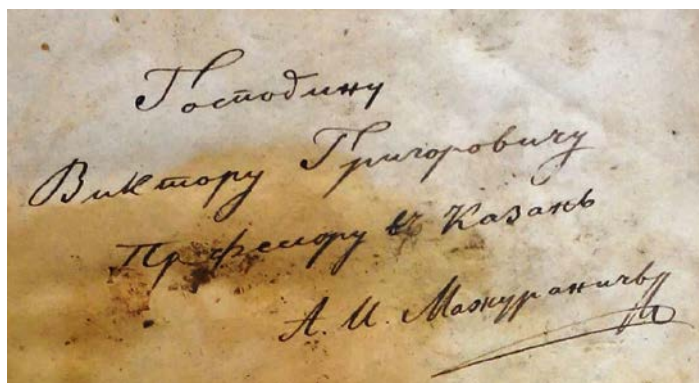 Господину
Виктору Григоровичу
Пр фессору въ Казань
А. И. Мажураничъ